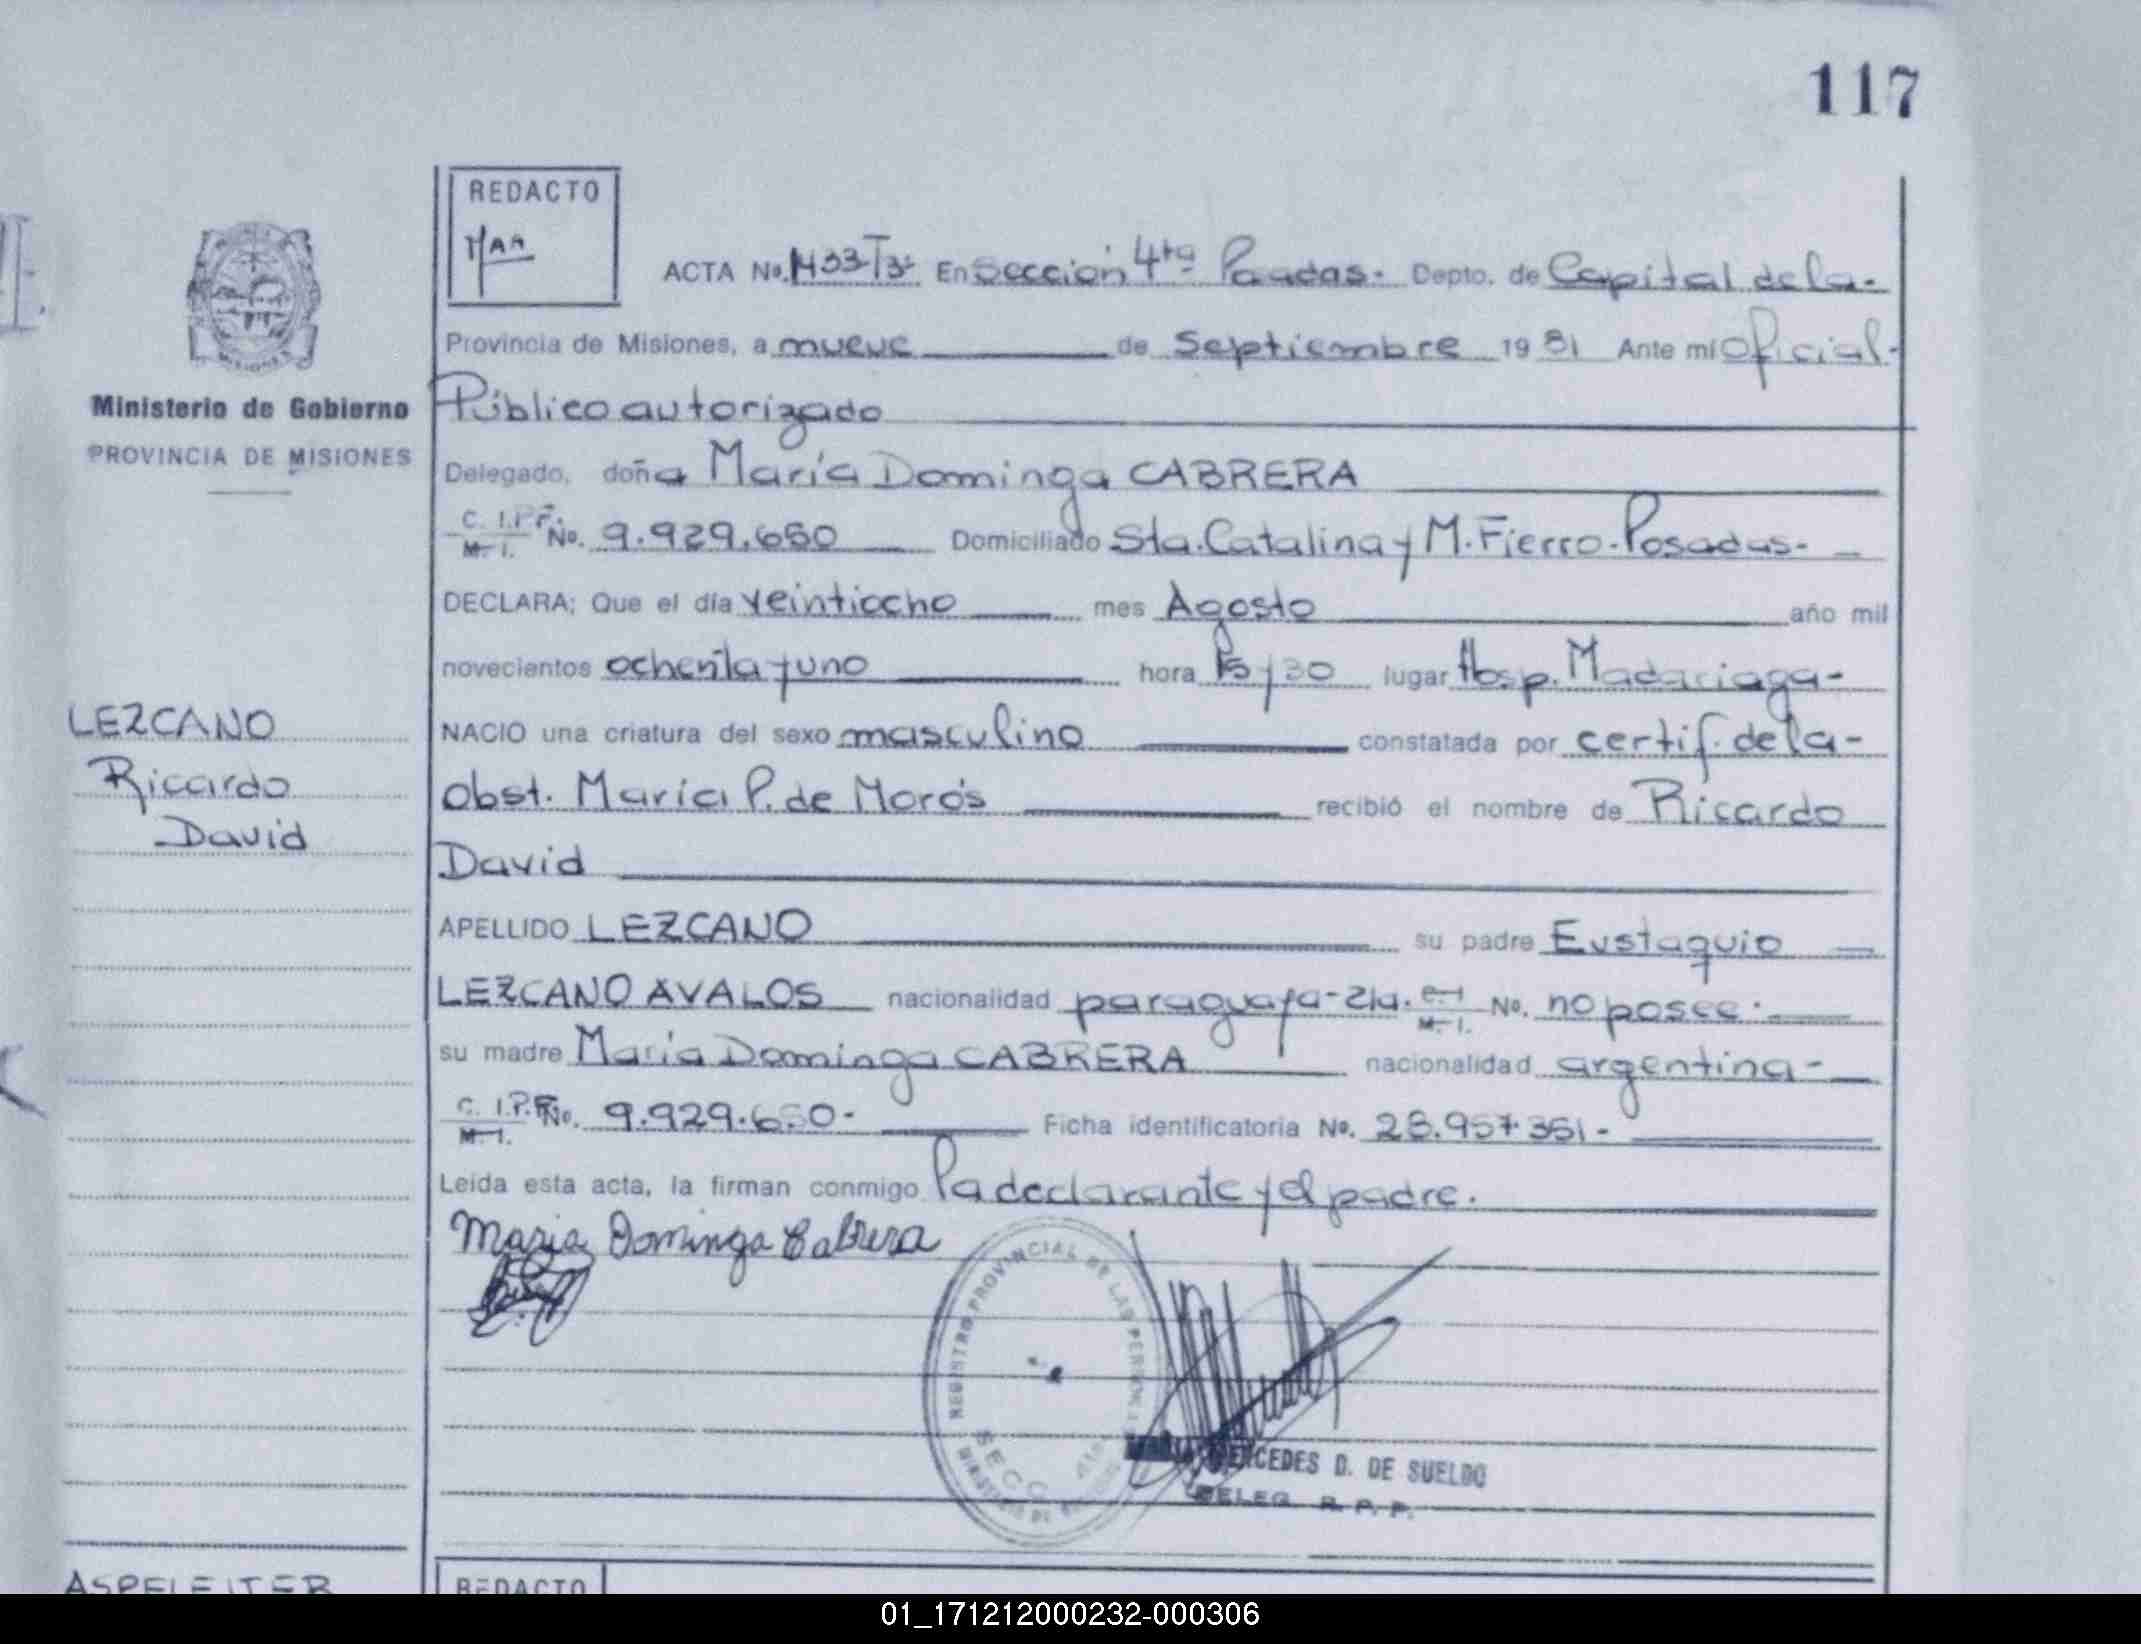 117
REDACTO
ACTA No. 1433-T3º En Sección 4ta Posadas. Depto. de Capital de la-
Provincia de Misiones, a nueve de Septiembre 1981 Ante mi Oficial-
Ministerio de Gobierno
Público autorizado
PROVINCIA DE MISIONES
Delegado, doña María Dominga CABRERA
C. I.P.F. M. I. No. 9.929.650 Domiciliado Sta. Catalina y M. Fierro-Posadas-
DECLARA: Que el día veintiocho mes Agosto año mil
novecientos ochenta y uno hora 15/30 lugar Hosp. Madariaga-
LEZCANO
NACIO una criatura del sexo masculino constatada por certif. de la-
Ricardo
obst. María P. de Morós recibió el nombre de Ricardo
David
David
APELLIDO LEZCANO su padre Eustaquio
LEZCANO AVALOS nacionalidad paraguaya-21a. C. I. M. I. No. no posee.
su madre María Dominga CABRERA nacionalidad argentina-
C. I.P.F. M. I. No. 9.929.650- Ficha identificatoria No. 28.957.351-
Leida esta acta, la firman conmigo la declarante y el padre.
Maria Dominga Cabrera
REGISTRO PROVINCIAL DE LAS PERSONAS
SECC
MERCEDES D. DE SUELDO
DELEG. R. P. P.
ASPELEITER
REDACTO
01_171212000232-000306